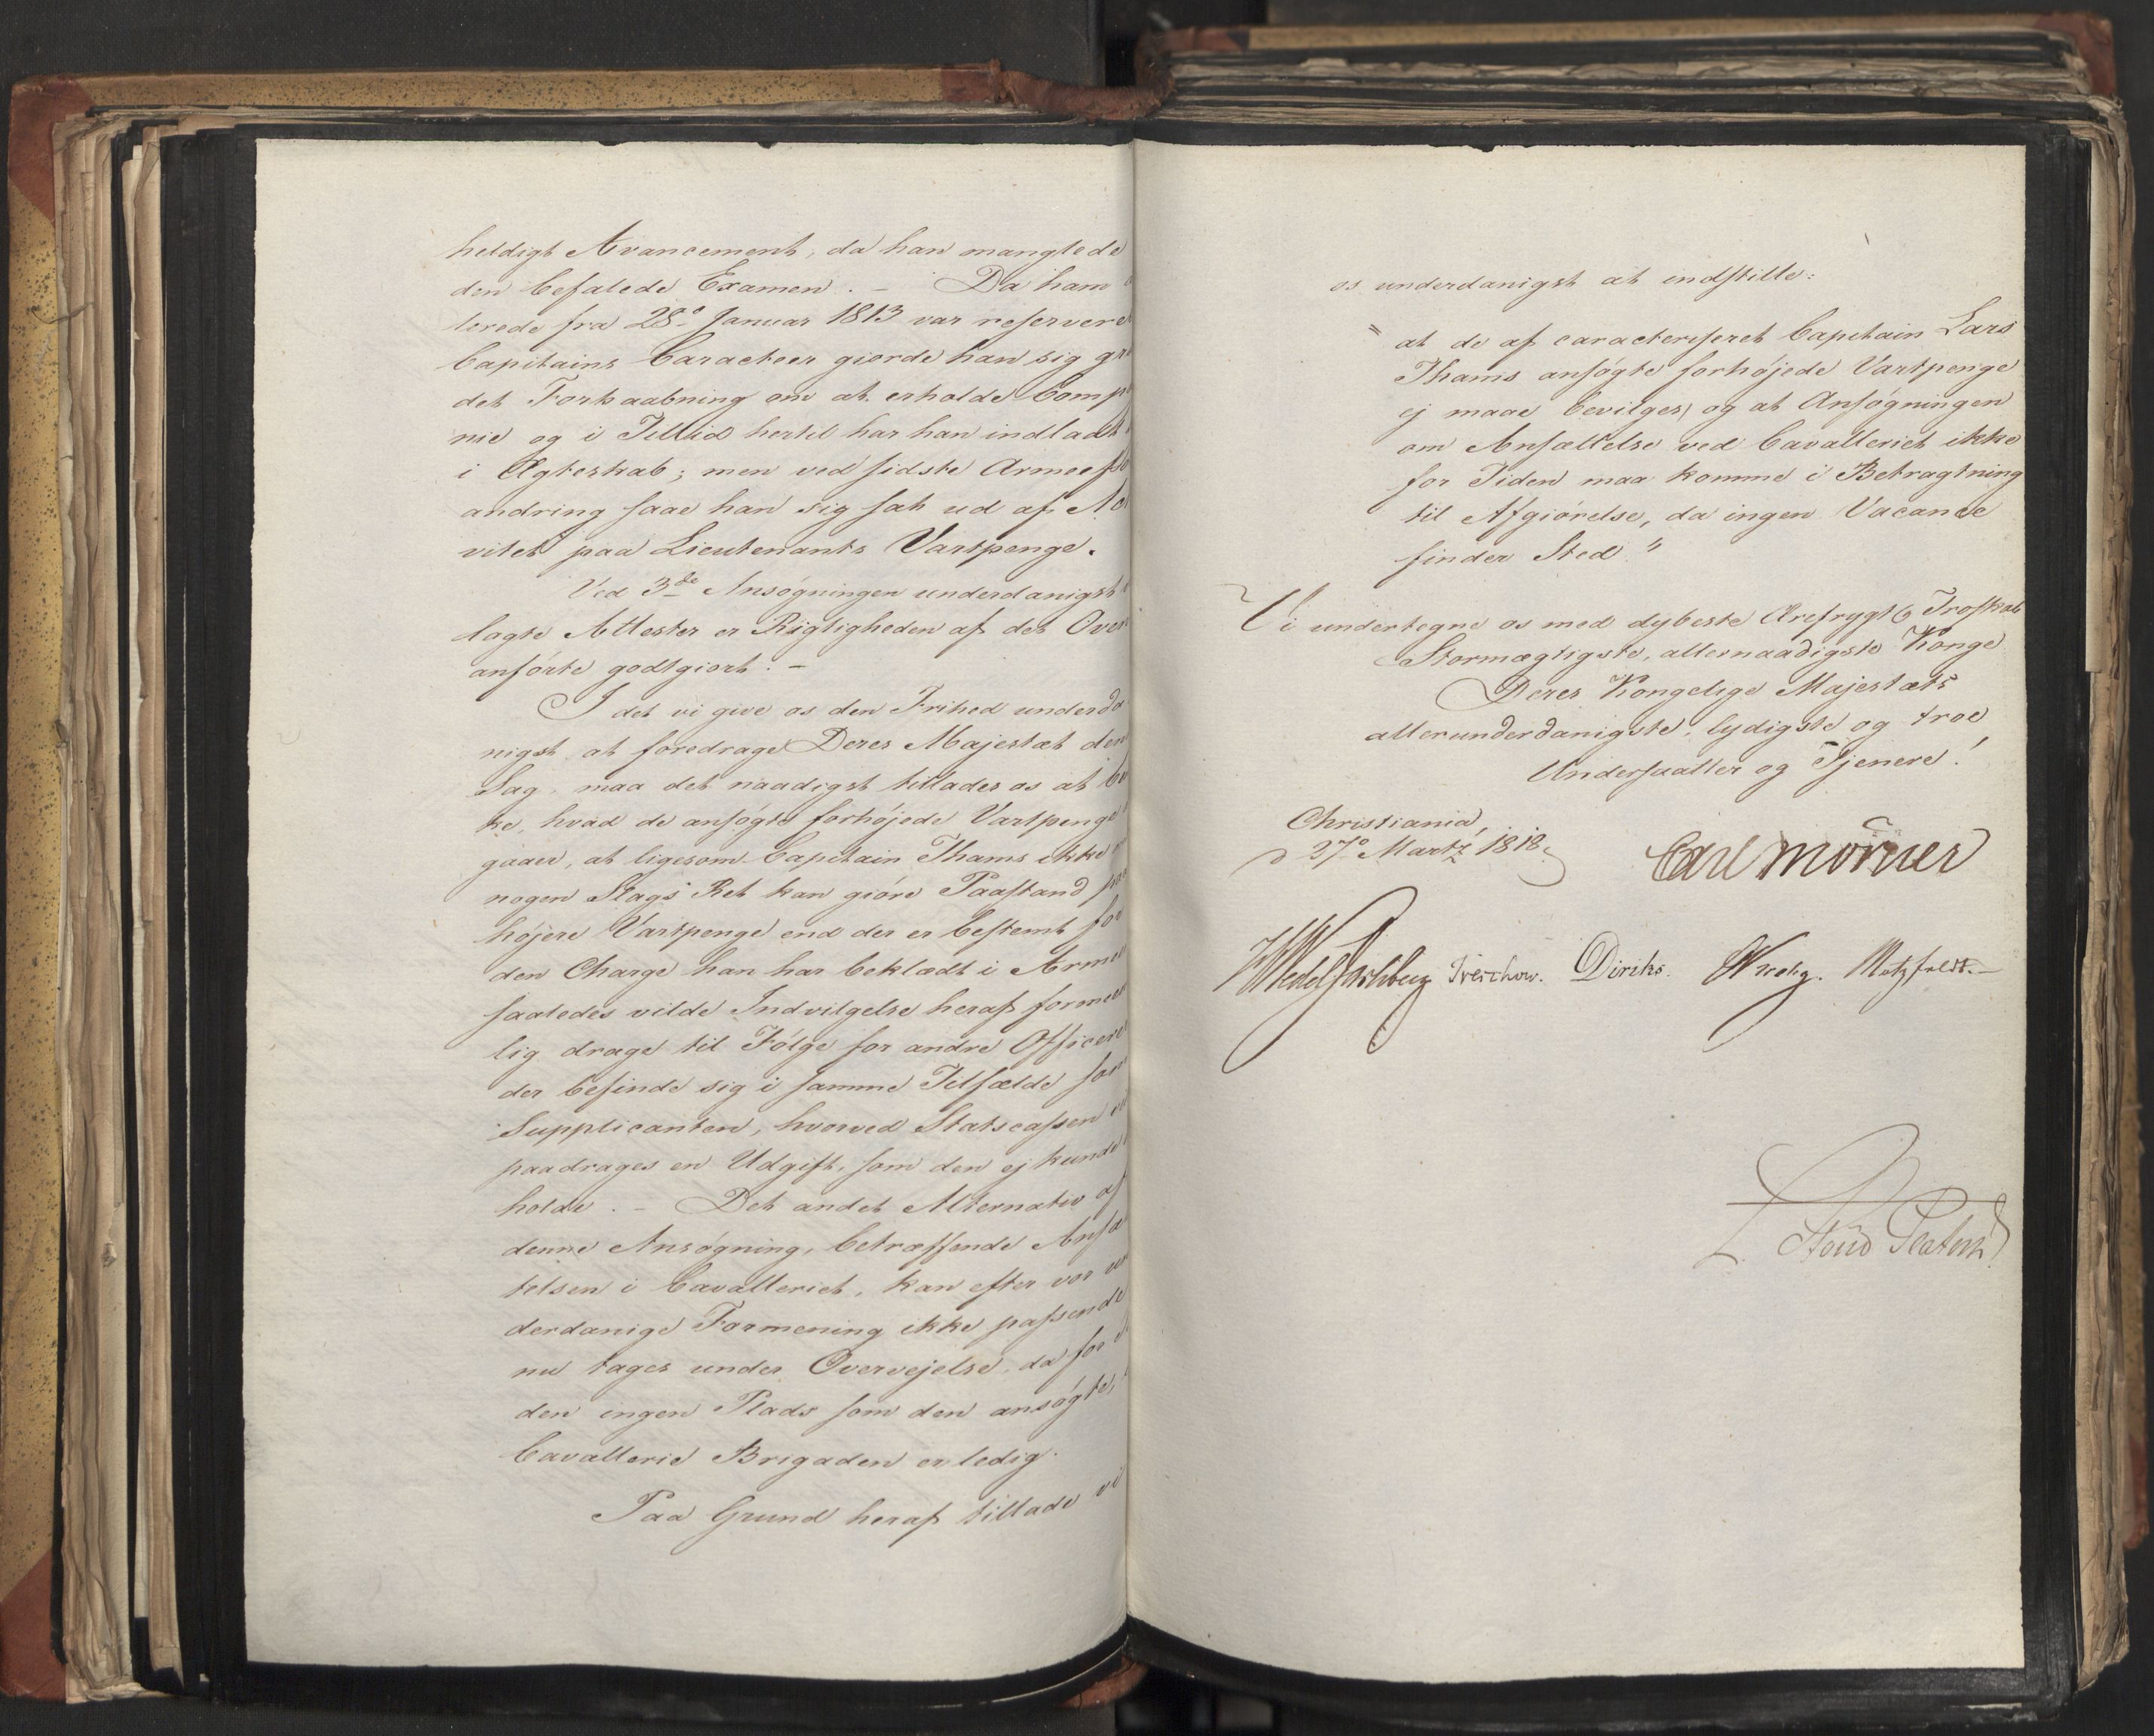 heldigt Avancement, da han manglede
den befalede Examen. – Da ham
lerede fra 28de Januar 1813 var reserveret
Capitains Caracteer giorde han sig
det Forhaabning om at erholde Comp
nie og i Tillid hertil har han indladt
i Ægteskab; men ved sidste Armeefor
andring saae han sig sat ud af Ac
vitet paa Lieutenants Vartpenge.
Ved 3de Ansøgningen underdanigst
lagte Attester er Rigtigheden af det Oven
anførte godtgiort. –
I det vi give os den Frihed underda
nigst at foredrage Deres Majestæt den
Sag, maa det naadigst tillades os at be
ke, hvad de ansøgte forhøjede Vartpenge
gaaer, at ligesom Capitain Thams ikke
nogen Slags Ret kan giøre Paastand paa
højere Vartpenge end der er bestemt for
den Charge han har beklædt i Armeen
saaledes vilde Indvilgelse heraf formeent
lig drage til Følge for andre Officerer
der befinde sig i samme Tilfælde som
Supplicanten, hvorved Statscassen
paadrages en Udgift, som den ej kunde
holde. – Det andet Alternativ af
denne Ansøgning, betræffende Ansæt
telsen i Cavalleriet, kan efter vor un
derdanige Formening ikke passende
nu tages under Overvejelse, da for
den ingen Plads som den ansøgte,
Cavallerie Brigaden er ledig.
Paa Grund heraf tillade vi
os underdanigst at indstille:
"at de af caracteriseret Capitain Lars
Thams ansøgte forhøjede Vartpenge
ej maae bevilges, og at Ansøgningen
om Ansættelse ved Cavalleriet ikke
for Tiden maa komme i Betragtning
til Afgiørelse, da ingen Vacance
finder Sted."
Vi undertegne os med dybeste Ærefrygt og Troskab
Stormægtigste, allernaadigste Konge
Deres Kongelige Majestæts
allerunderdanigste, lydigste og troe
Undersaatter og Tjenere!
Christiania,
d 27de Martz 1818.
Carl Mörner
HWedel Jarlsberg Treschow. Diriks. Krieg. Motzfeldt. –
Stoud Platou